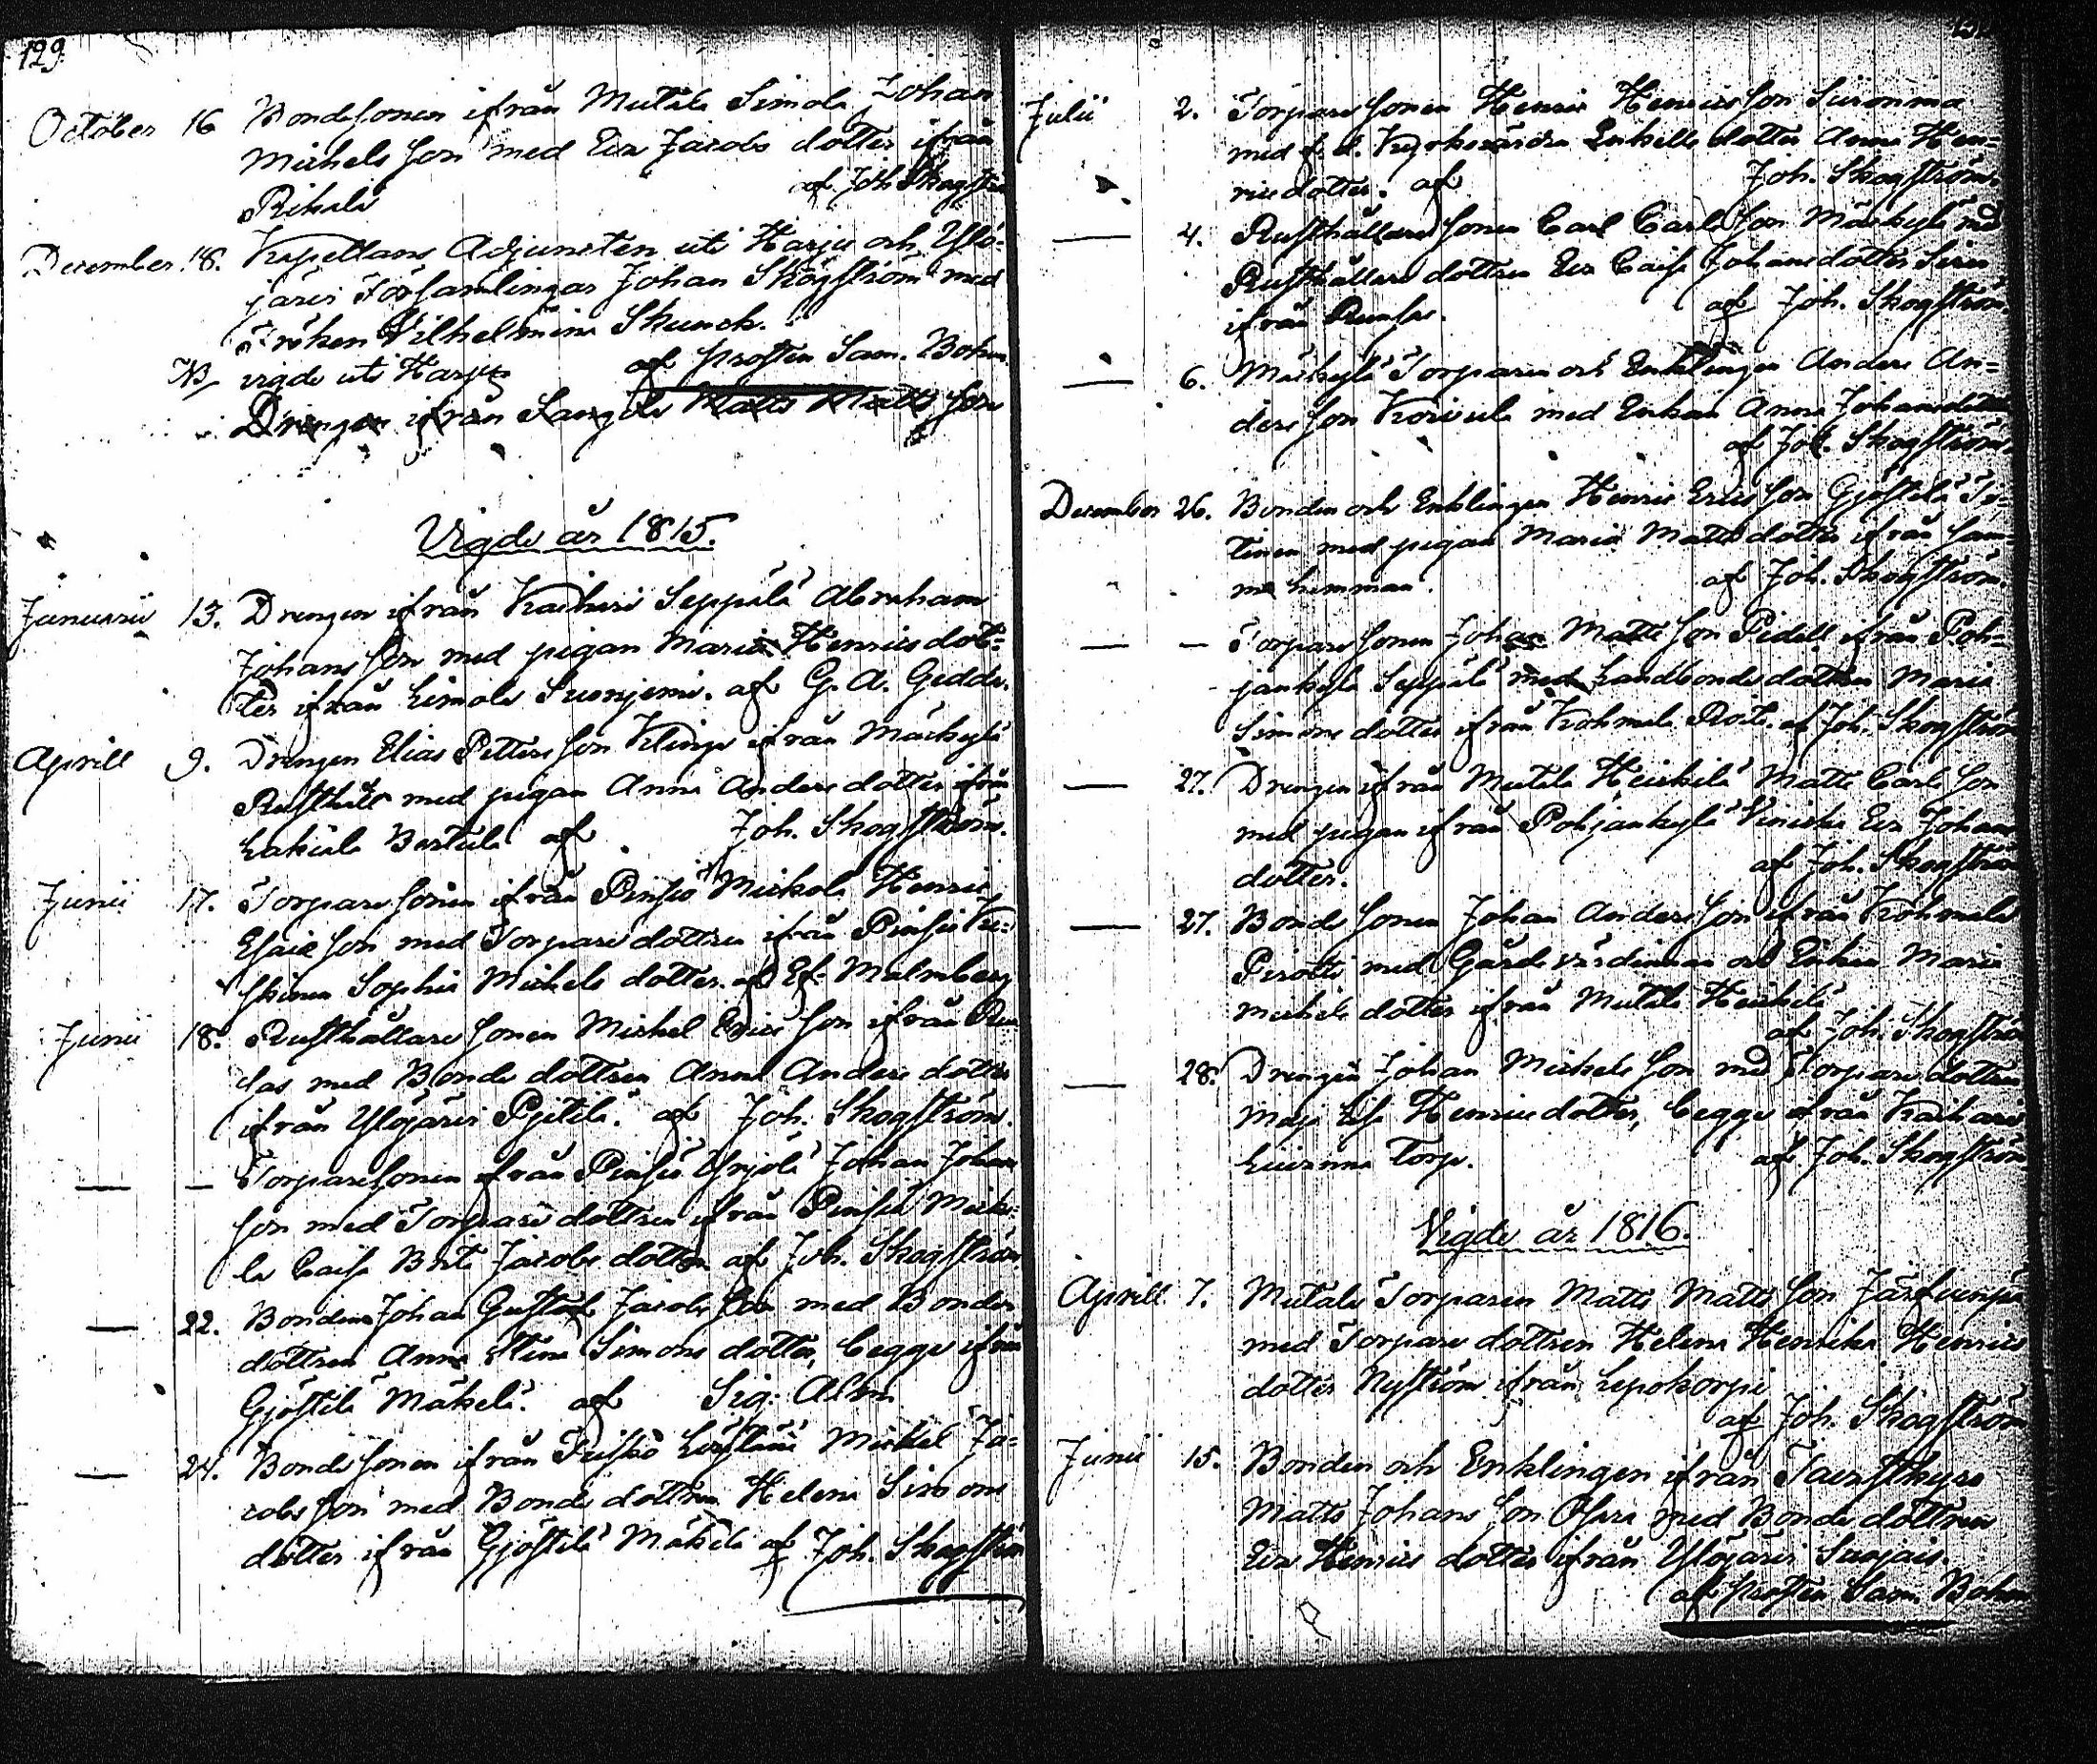 129.
October 16 Bondesonen ifrån Mutala Simola Johan
Michels Son med Eva Jacobs dotter ifrån
Rikala af Joh Skogström
December 18. Kapellans Adjuncten uti Harju och Ylö-
järvi Församlingar Johan Skogström med
Fröken Vilhelmina Skunck.
NB vigde uti Harju af Prosten Sam. Bohm
Drengen ifrån Matts Matts Son
Vigde år 1815.
Januarii 13. Drengen ifrån Kaihari Seppälä Abraham
Johans Son med pigan Maria Henrics dot-
ter ifrån Simola Suonjemi. af G. A. Gedda.
Aprill 9. Drengen Elias Petters Son Klinga ifrån Mäckylä
Rusthåll med pigan Anna Anders dotter ifrån
Lakiala Bertula af Joh. Skogström.
Junii 17. Torpare Sonen ifrån Pinsiö Mickola Henric
Esaie Son med Torpare dottren ifrån Pinsiö
Sophia Michels dotter. af Ef. Malmberg
Junii 18. Rusthållare Sonen Michel Erics Son ifrån Run-
sas med Bonde dottren Anna Anders dotter
ifrån Ylöjärvi Pjetilä. af Joh. Skogström.
— — Torpare Sonen ifrån Pinsiö Yrjölä Johan Johans
Son med Torpare dottren ifrån Pinsiö Micko-
la Caisa Brita Jacobs dotter af Joh. Skogström
— 22. Bonden Johan Gustaf Jacobs Son med Bonde
dottren Anna Stina Simons dotter, begge ifrån
Gjöstilä Mäkelä. af Sig. Alén
— 24. Bonde Sonen ifrån Michel Ja-
cobs Son med Bonde dottren Helena Simons
dotter ifrån Gjöstilä Mäkelä af Joh. Skogström
Julii 2. Torpare Sonen Henric Henrics Son Siironma
med f. d. Enkelle dotter Anna Hen-
rics dotter. af Joh. Skogström.
— 4. Rusthållare Sonen Carl Carls Son Mäckylä med
Rusthållare dottren Eva Caisa Johans dotter Siren
ifrån Runsas. af Joh. Skogström.
— 6. Mäckylä Torparen och Enklingen Anders An-
ders Son Koivula med Enkan Anna Johans dotter
af Joh. Skogström.
December 26. Bonden och Enklingen Henric Erics Son Gjöstilä
med pigan Maria Matts dotter ifrån Sam-
ma hemman. af Joh. Skogström.
— — Torpare Sonen Johan Matts Son Pidell ifrån Poh-
jankylä Seppälä med Landbonde dottren Maria
Simons dotter ifrån Kohmala af Joh. Skogström
— 27. Drengen ifrån Mutala Heickilä Matts Carls Son
med pigan ifrån Pohjankylä Eva Johans
dotter. af Joh. Skogström
— 27. Bonde Sonen Johan Anders Son ifrån Kohmala
Perotti med Gårds värdinnan och Enkan Maria
Michels dotter ifrån Mutala Heickilä
af Joh. Skogström
— 28. Drengen Johan Michels Son med Torpare dottren
Maja Lisa Henrics dotter, begge ifrån Kaihari
Torp. af Joh. Skogström
Vigde år 1816.
Aprill 7. Mutala Torparen Matts Matts Son
med Torpare dottren Helena Henrika Henrics
dotter Nyström ifrån Lepokorpi
af Joh. Skogström
Junii 15. Bonden och Enklingen ifrån Tavastkyro
Matts Johans Son Osara med Bonde dottren
Eva Henrics dotter ifrån Ylöjärvi
af Prosten Sam. Bohm